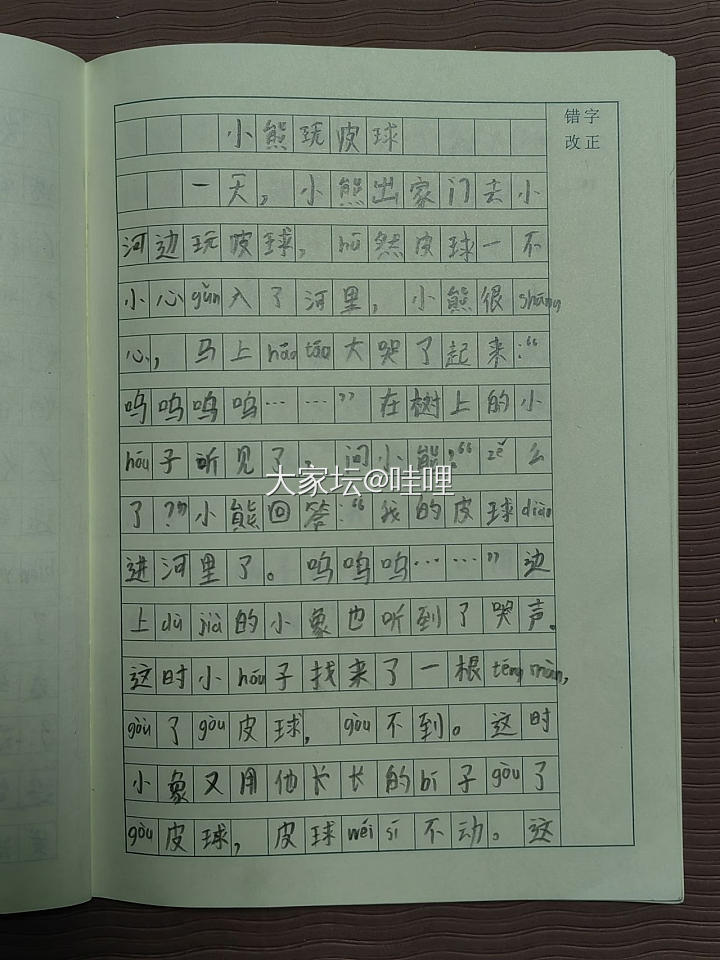 错字
改正
小熊玩皮球
一天，小熊出家门去小
河边玩皮球，hū然皮球一不
小心gǔn入了河里，小熊很shāng
心，马上háo táo大哭了起来：“
呜呜呜呜……”在树上的小
hóu子听见了，问小熊：“zě么
了？”小熊回答：“我的皮球diào
进河里了。呜呜呜……”边
上dù jià的小象也听到了哭声。
这时小hóu子找来了一根téng màn，
gòu了gòu皮球，gòu不到。这时
小象又用他长长的bí子gòu了
gòu皮球，皮球wéi sī不动。这
大家坛@哇哩